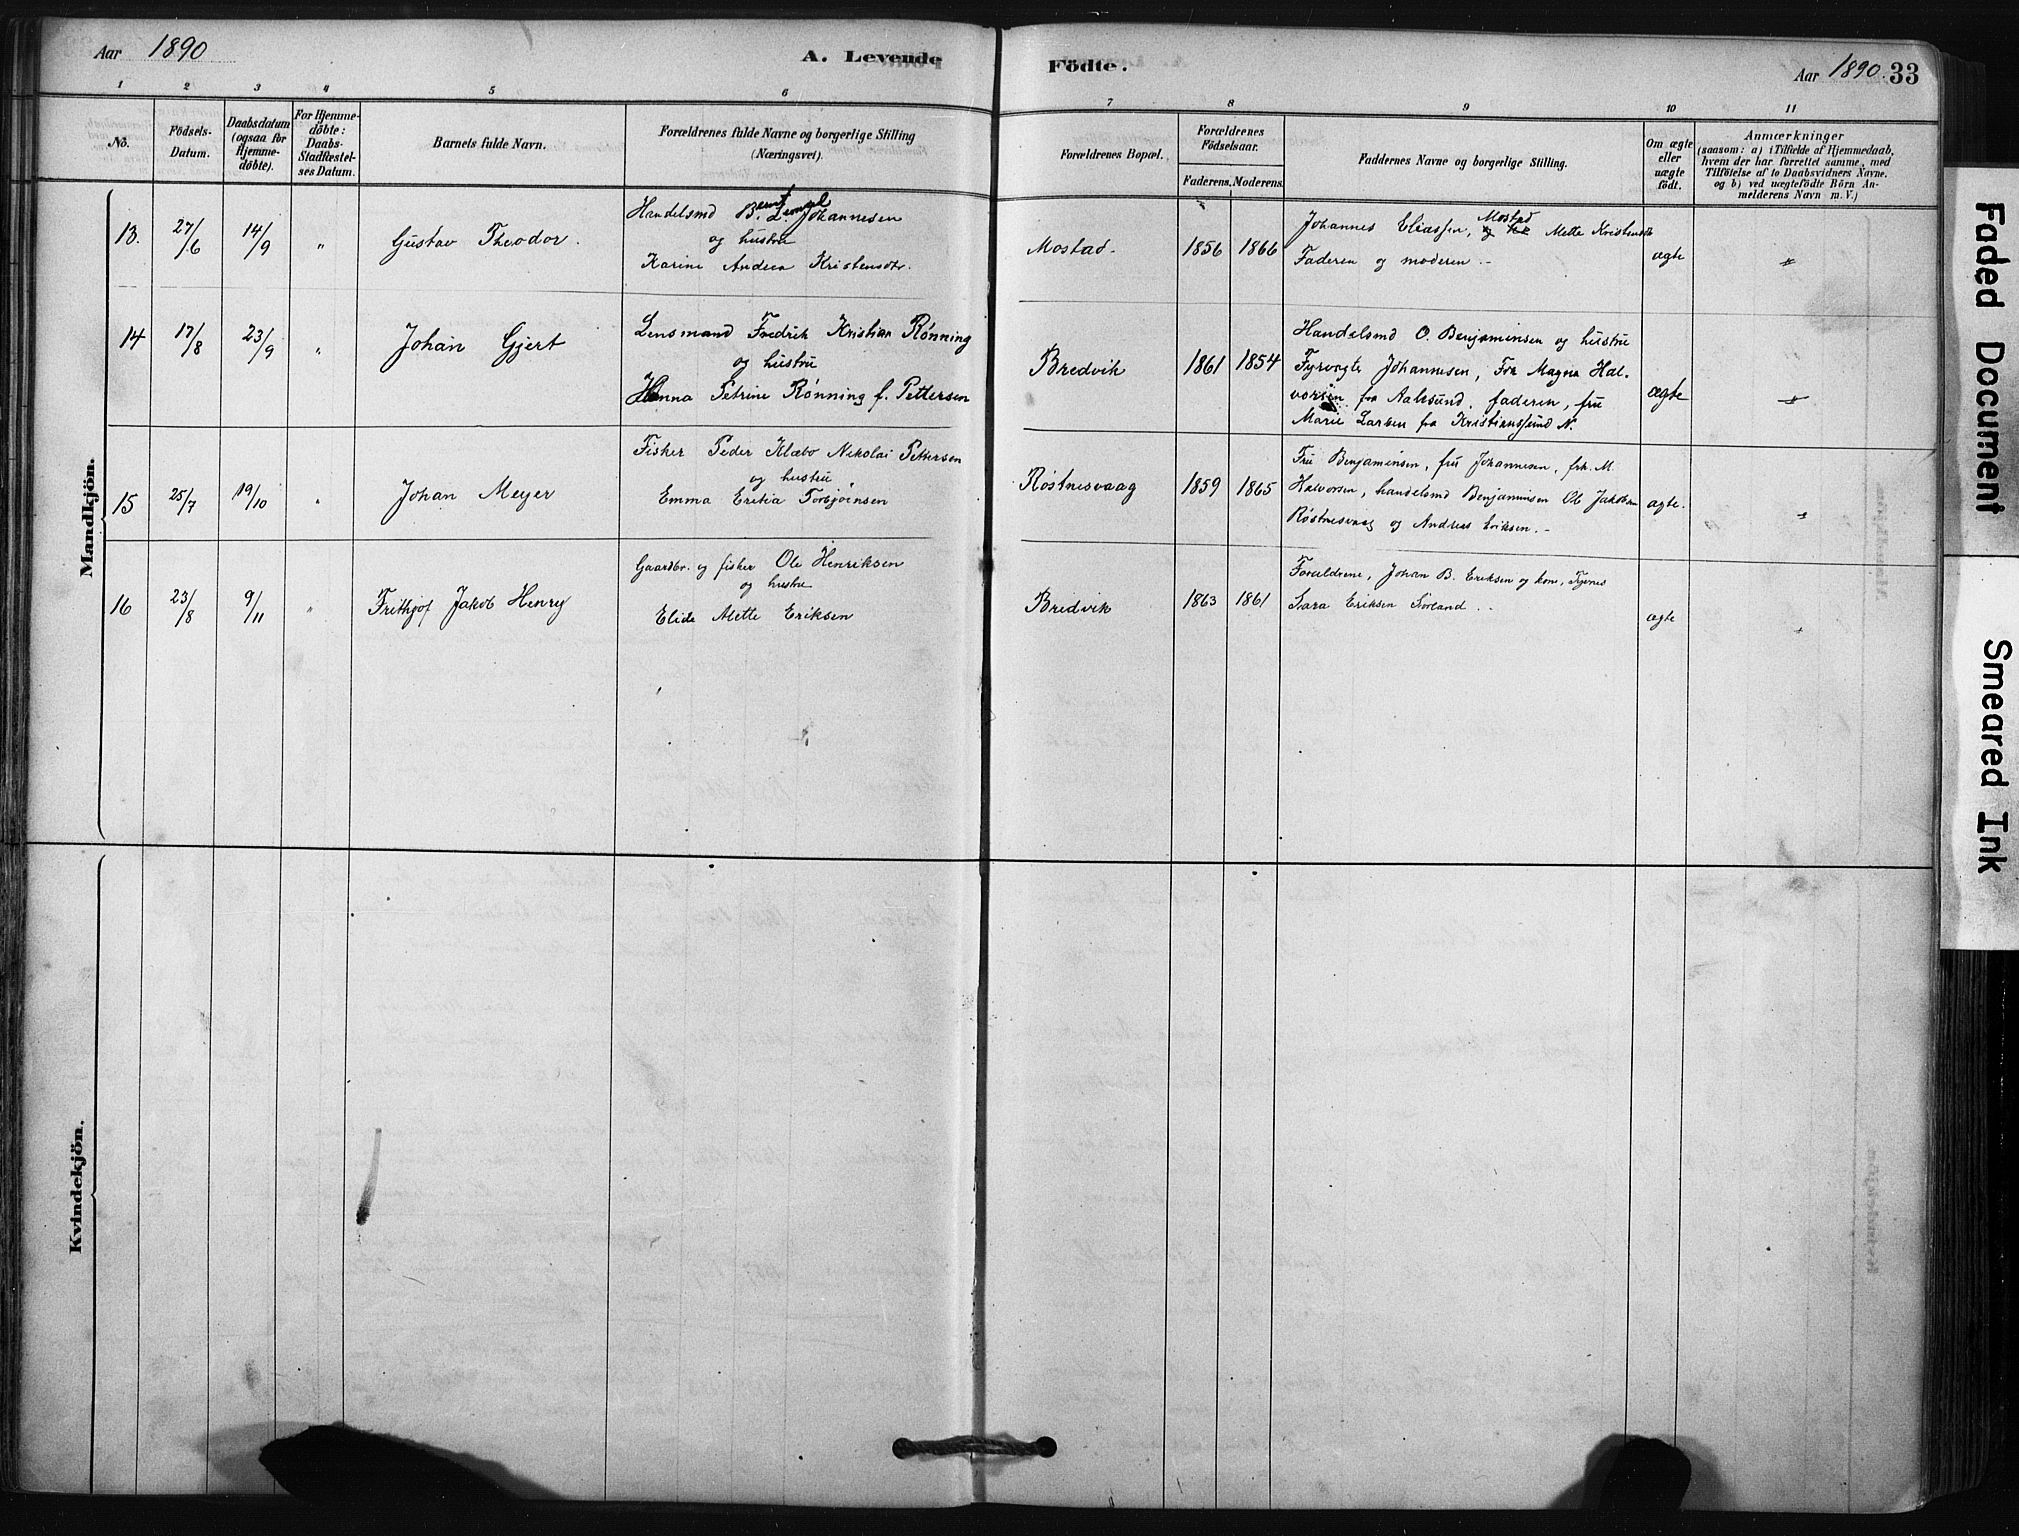 Aar 1890
A. Levende
Födte.
Aar 1890. 33
1 2 3 4 5 6 7 8 9 10 11
No.
Födsels-
Datum.
Daabsdatum
(ogsaa for
Hjemme-
döbte).
For Hjemme-
döbte:
Daabs-
Stadfæstel-
ses Datum.
Barnets fulde Navn.
Forældrenes fulde Navne og borgerlige Stilling
(Næringsvei).
Forældrenes Bopæl.
Forældrenes
Födselsaar.
Faderens. Moderens.
Faddernes Navne og borgerlige Stilling.
Om ægte
eller
uægte
födt.
Anmærkninger
(saasom: a) i Tilfælde af Hjemmedaab,
hvem der har forrettet samme, med
Tilföielse af to Daabsvidners Navne.
og b) ved uegtefödte Börn An-
melderens Navn m. V.)
Mandkjön.
13. 27/6 14/9 " Gustav Theodor.
Handelsmd B. L. Johannesen
og hustru
Karine Andrea Kristensdtr.
Mostad. 1856 1866
Johannes Eliassen, Mostad Mette Kristensdtr
Faderen og moderen.-
ægte "
14 17/8 23/9 " Johan Gjert
Lensmand Fredrik Kristian Rønning
og hustru
Hanna Petrine Rønning f. Pettersen
Bredvik 1861 1854
Handelsmd O. Benjaminsen og hustru
Fyrvogte Johannesen, Frk Magna Hal-
vorsen fra Aalesund, faderen, fru
Marie Larsen fra Kristianssund N.
ægte "
15 25/7 19/10 " Johan Meyer
Fisker Peder Klæbo Nikolai Pettersen
og hustru
Emma Torbjørnsen
Røstnesvaag 1859 1865
Fru Benjaminsen, fru Johannesen, frk. M.
Halvorsen, handelsmd Benjaminsen Ole Jakobsen
Røstnesvaag og Andreas Eriksen.-
ægte. "
16 23/8 9/11 " Frithjof Jakob Henry
Gaardbr. og fisker Ole Henriksen
og hustru
Elida Alette Eriksen
Bredvik 1863 1861
Forældrene, Johan B. Eriksen og kone,
Sara Eriksen Sørland.-
ægte "
Kvindekjön.
Faded Document
Smeared Ink